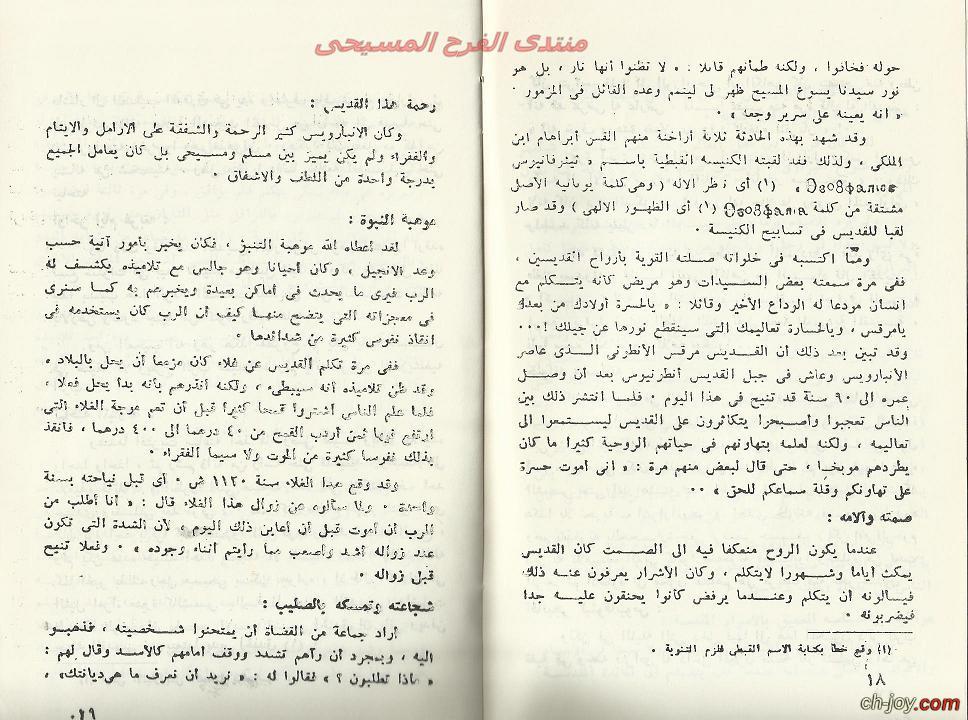 منتدى الفرح المسيحى
حوله فخافوا ، ولكنه طمأنهم قائلا : « لا تظنوا أنها نار ، بل هو
نور سيدنا يسوع المسيح ظهر لى ليتمم وعده القائل فى المزمور ·
« انه يعينه على سرير وجعه »
وقد شهد بهذه الحادثة ثلاثة أراخنة منهم القس أبراهام ابن
الملكى ، ولذلك فقد لقبته الكنيسة القبطية باسم « تيئوفانيوس
(١) أى نظر الاله ( وهى كلمة يونانية الأصل
مشتقة من كلمة (١) أى الظهور الالهى ) وقد صار
لقبا للقديس فى تسابيح الكنيسة ·
ومما اكتسبه فى خلواته صلته القوية بأرواح القديسين ،
ففى مرة سمعته بعض السيدات وهو مريض كأنه يتكلم مع
انسان مودعا له الوداع الأخير وقائلا : « يالحسرة أولادك من بعدك
يامرقس ، ويالخسارة تعاليمك التى سينقطع نورها عن جيلك !···
وقد تبين بعد ذلك أن القديس مرقس الأنطونى الذى عاصر
الأنبارويس وعاش فى جبل القديس أنطونيوس بعد أن وصل
عمره الى ٩٠ سنة قد تنيح فى هذا اليوم · فلما انتشر ذلك بين
الناس تعجبوا وأصبحوا يتكاثرون على القديس ليستمعوا الى
تعاليمه ، ولكنه لعلمه بتهاونهم فى حياتهم الروحية كثيرا ما كان
يطردهم موبخا ، حتى قال لبعض منهم مرة : « انى أموت حسرة
على تهاونكم وقلة سماعكم للحق » ··
صمته وآلامه :
عندما يكون الروح منعكفا فيه الى الصمت كان القديس
يمكث أياما وشهورا لايتكلم ، وكان الأشرار يعرفون عنه ذلك
فيسألونه أن يتكلم وعندما يرفض كانوا يحنقون عليه جدا
فيضربونه ·
(١) وقع خطأ بكتابة الاسم القبطى فلزم التنوية ·
١٨
رحمة هذا القديس :
وكان الانبارويس كثير الرحمة والشفقة على الارامل والايتام
والفقراء ولم يكن يميز بين مسلم ومسيحى بل كان يعامل الجميع
بدرجة واحدة من اللطف والاشفاق ·
موهبة النبوة :
لقد أعطاه الله موهبة التنبؤ ، فكان يخبر بأمور آتية حسب
وعد الانجيل ، وكان أحيانا وهو جالس مع تلاميذه يكشف له
الرب فيرى ما يحدث فى أماكن بعيدة ويخبرهم به كما سنرى
فى معجزاته التى يتضح منها كيف أن الرب كان يستخدمه فى
انقاذ نفوس كثيرة من شدائدها ·
ففى مرة تكلم القديس عن غلاء كان مزمعا أن يحل بالبلاد ،
وقد ظن تلاميذه أنه سيبطىء ، ولكنه أنذرهم بأنه بدأ يحل فعلا ،
فلما علم الناس اشتروا قمحا كثيرا قبل أن تعم موجة الغلاء التى
ارتفع فيها ثمن أردب القمح من ٤٠ درهما الى ٤٠٠ درهما ، فأنقذ
بذلك نفوسا كثيرة من الموت ولا سيما الفقراء ·
وقد وقع هذا الغلاء سنة ١١٢٠ ش · أى قبل نياحته بسنة
واحدة · ولما سألوه عن زوال هذا الغلاء قال : « أنا أطلب من
الرب أن أموت قبل أن أعاين ذلك اليوم ، لأن الشدة التى تكون
عند زواله أشد وأصعب مما رأيتم أثناء وجوده » · وفعلا تنيح
قبل زواله ·
شجاعته وتمسكه بالصليب :
أراد جماعة من القضاة أن يمتحنوا شخصيته ، فذهبوا
اليه ، وبمجرد أن رآهم تشدد ووقف أمامهم كالأسد وقال لهم :
« ماذا تطلبون ؟ » فقالوا له : « نريد أن نعرف ما هى ديانتك» ،
١٩
ch-joy.com